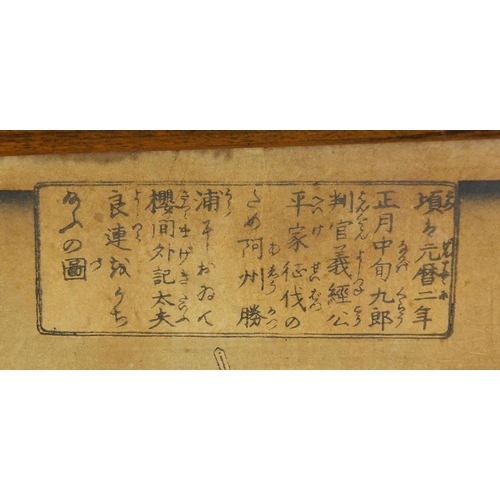 頃は元暦二年
正月中旬九郎
判官義經公
平家征伐の
ため阿州勝
浦におゐて
櫻間外記太夫
良連をうち
の圖